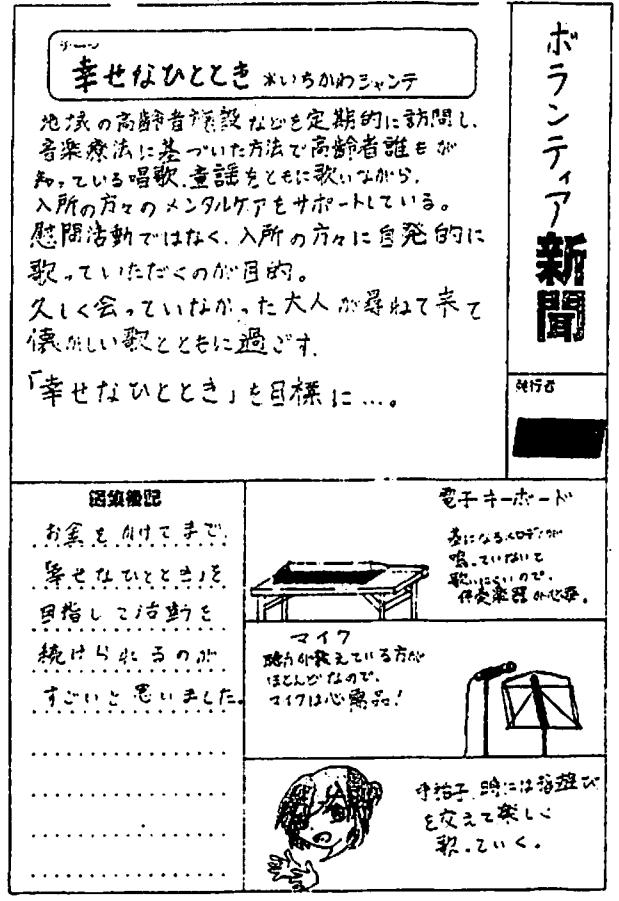 ボランティア新聞
発行者
テーマ
幸せなひととき *いちかわシャンテ
地域の高齢者施設などを定期的に訪問し、
音楽療法に基づいた方法で高齢者誰もが
知っている唱歌、童謡をともに歌いながら、
入所の方々のメンタルケアをサポートしている。
慰問活動ではなく、入所の方々に自発的に
歌っていただくのが目的。
久しく会っていなかった大人が尋ねて来て
懐かしい歌とともに過ごす、
「幸せなひととき」を目標に…。
編集後記
お金をかけてまで、
「幸せなひととき」を
目指して活動を
続けられるのが
すごいと思いました。
電子キーボード
基になるメロディが
鳴っていないと
歌いにくいので、
伴奏楽器が必要。
マイク
聴力が衰えている方が
ほとんどなので、
マイクは必需品!
手拍子、時には指遊び
を交えて楽しく
歌っていく。